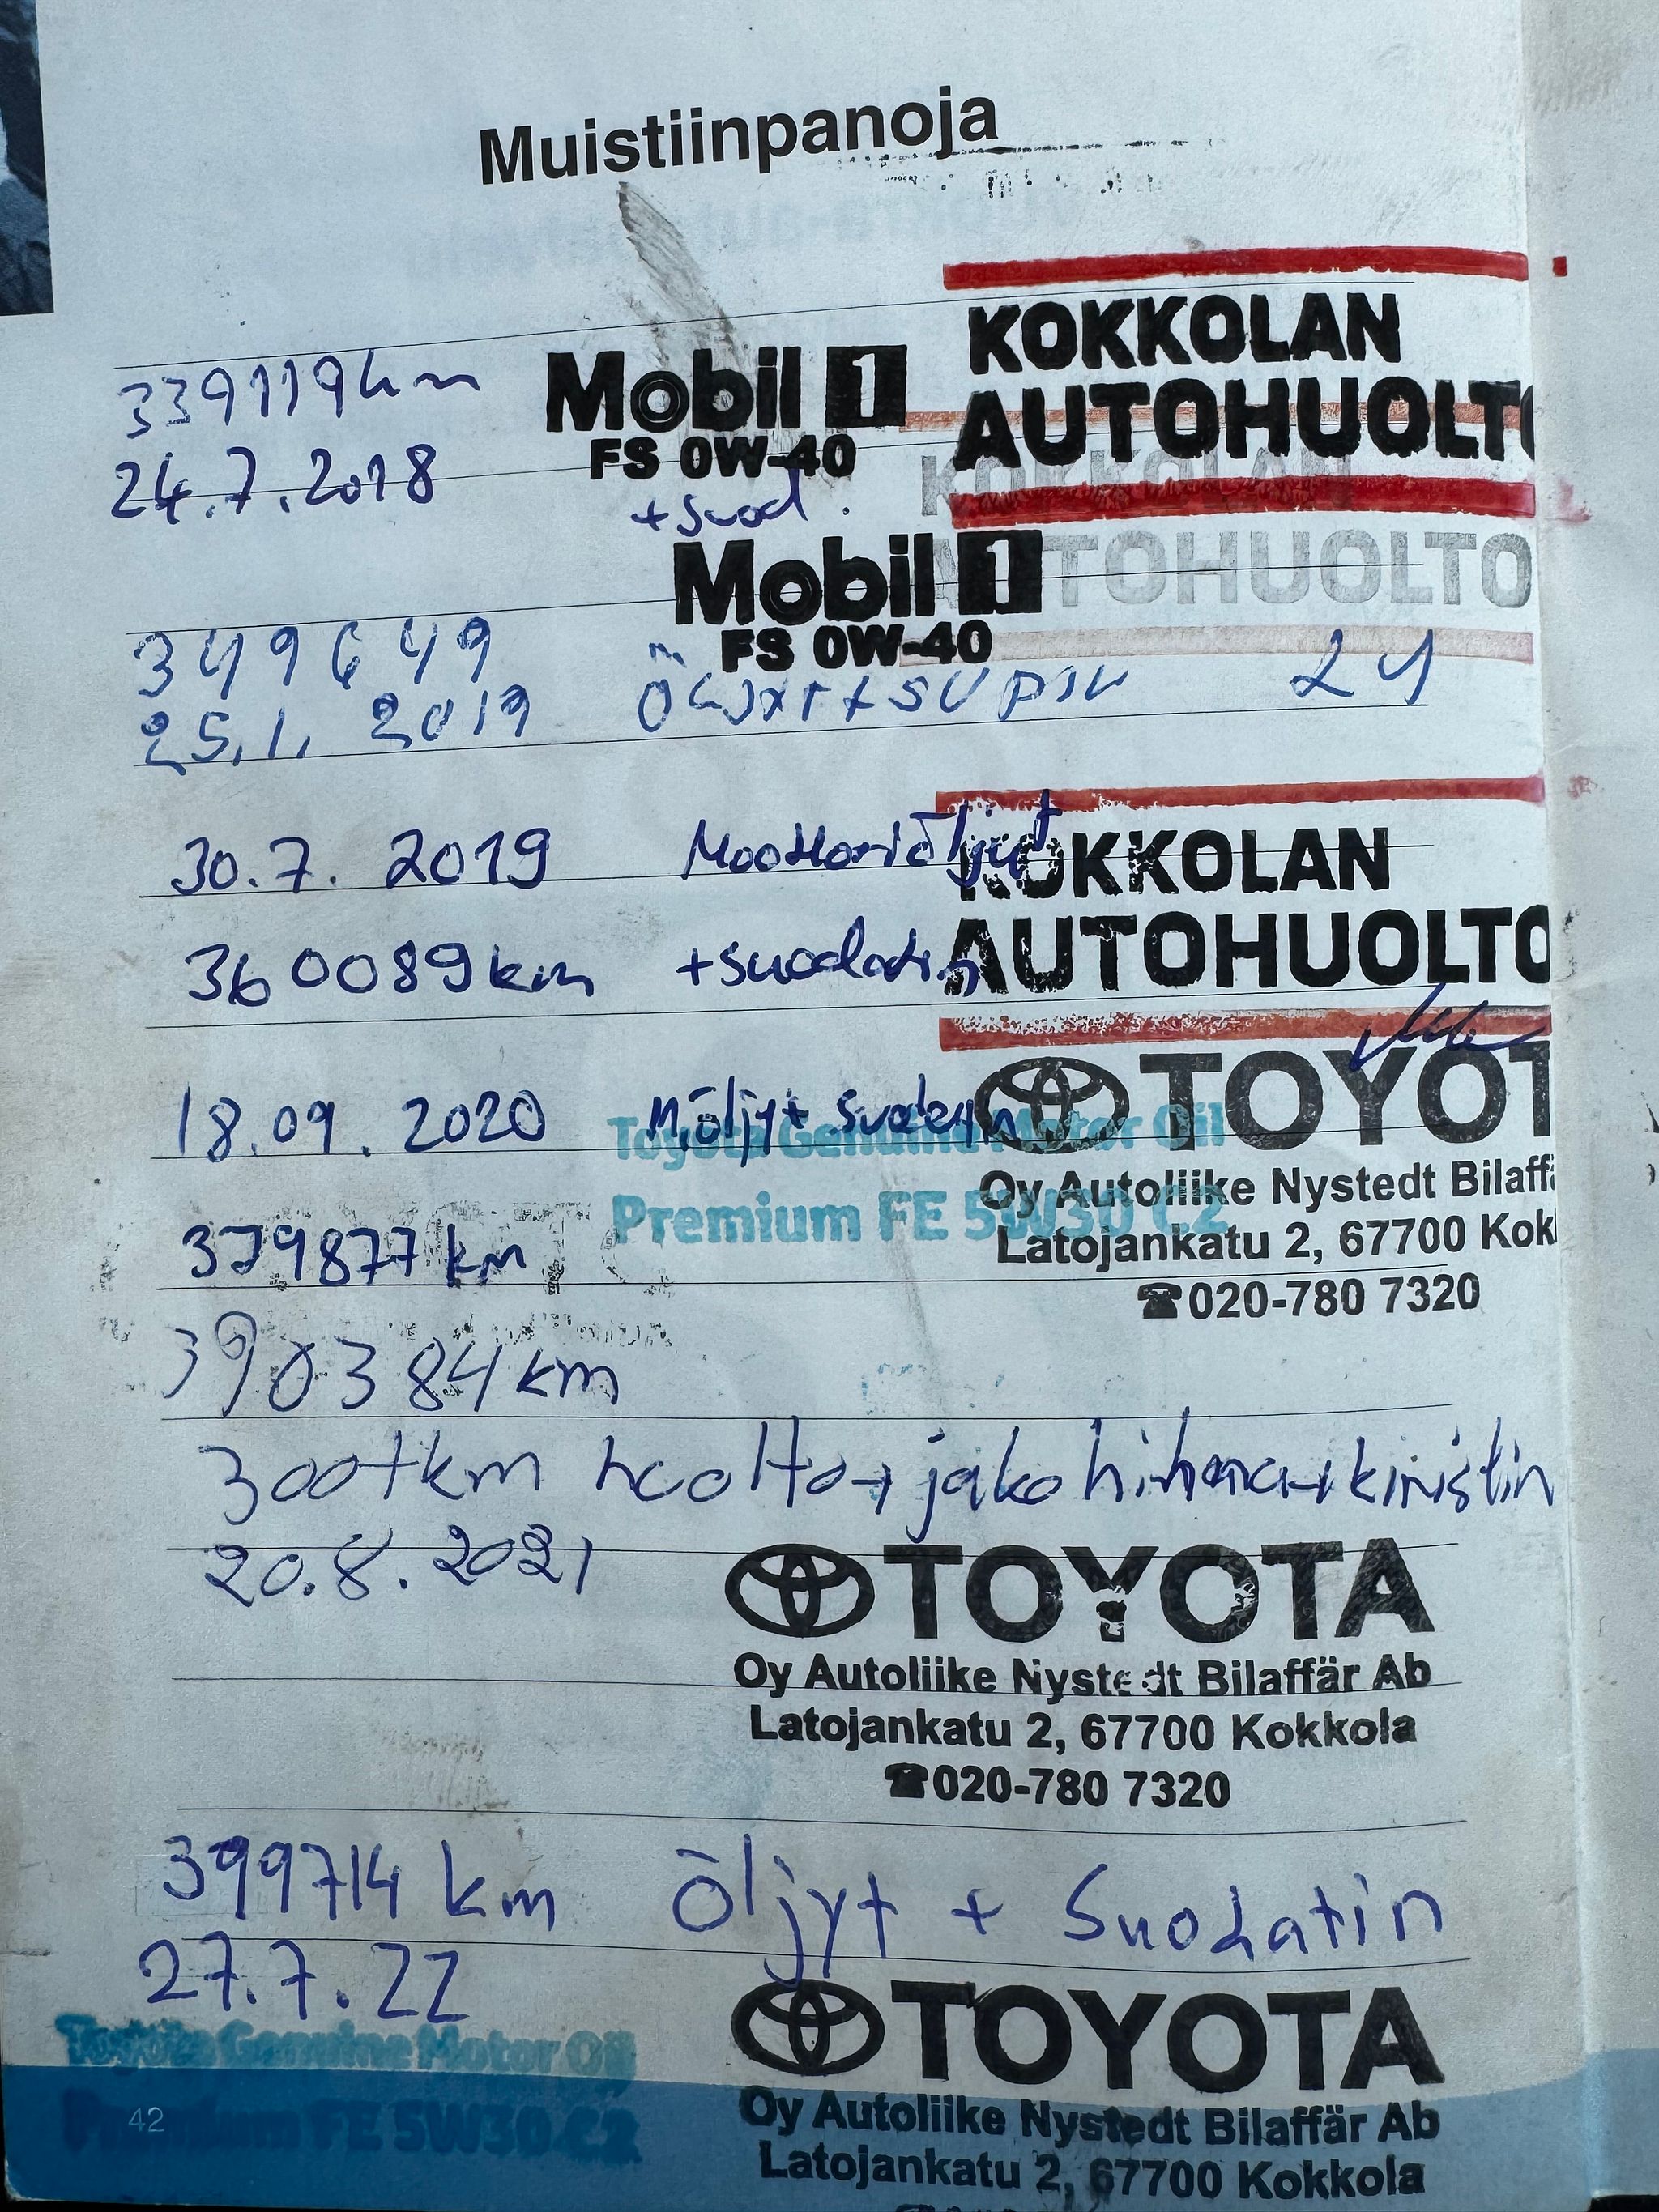 Muistiinpanoja
KOKKOLAN
AUTOHUOLTO
339119km Mobil 1
FS 0W-40
24.7.2018 + suod.
KOKKOLAN
AUTOHUOLTO
Mobil 1
FS 0W-40
349649
25.1.2019
30.7.2019 Moottoriöljyt
KOKKOLAN
AUTOHUOLTO
360089km +suodatin
TOYOT
18.09.2020 M.öljyt
Toyota Genuine Motor Oil
Premium FE 5W30 C2
Oy Autoliike Nystedt Bilaffä
Latojankatu 2, 67700 Kok
379877km
☎020-780 7320
390384km
300tkm huolto + jakohihna + kiristin
20.8.2021
TOYOTA
Oy Autoliike Nystedt Bilaffär Ab
Latojankatu 2, 67700 Kokkola
☎020-780 7320
399714 km Öljyt + Suodatin
27.7.22
TOYOTA
Toyota Genuine Motor Oil
Premium FE 5W30 C2
Oy Autoliike Nystedt Bilaffär Ab
Latojankatu 2, 67700 Kokkola
42